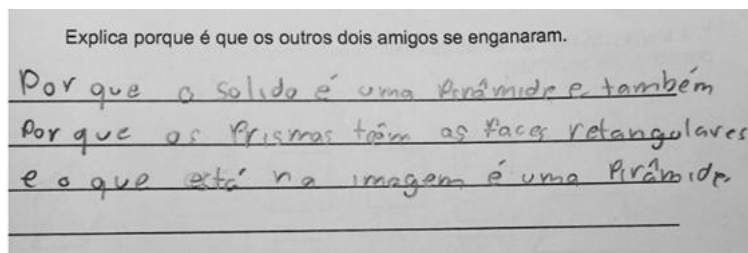 Explica porque é que os outros dois amigos se enganaram.
Por que o solido é uma Pirâmide e também
Por que os Prismas toêm as faces retangulares
e o que está na imagem é uma Pirâmide.